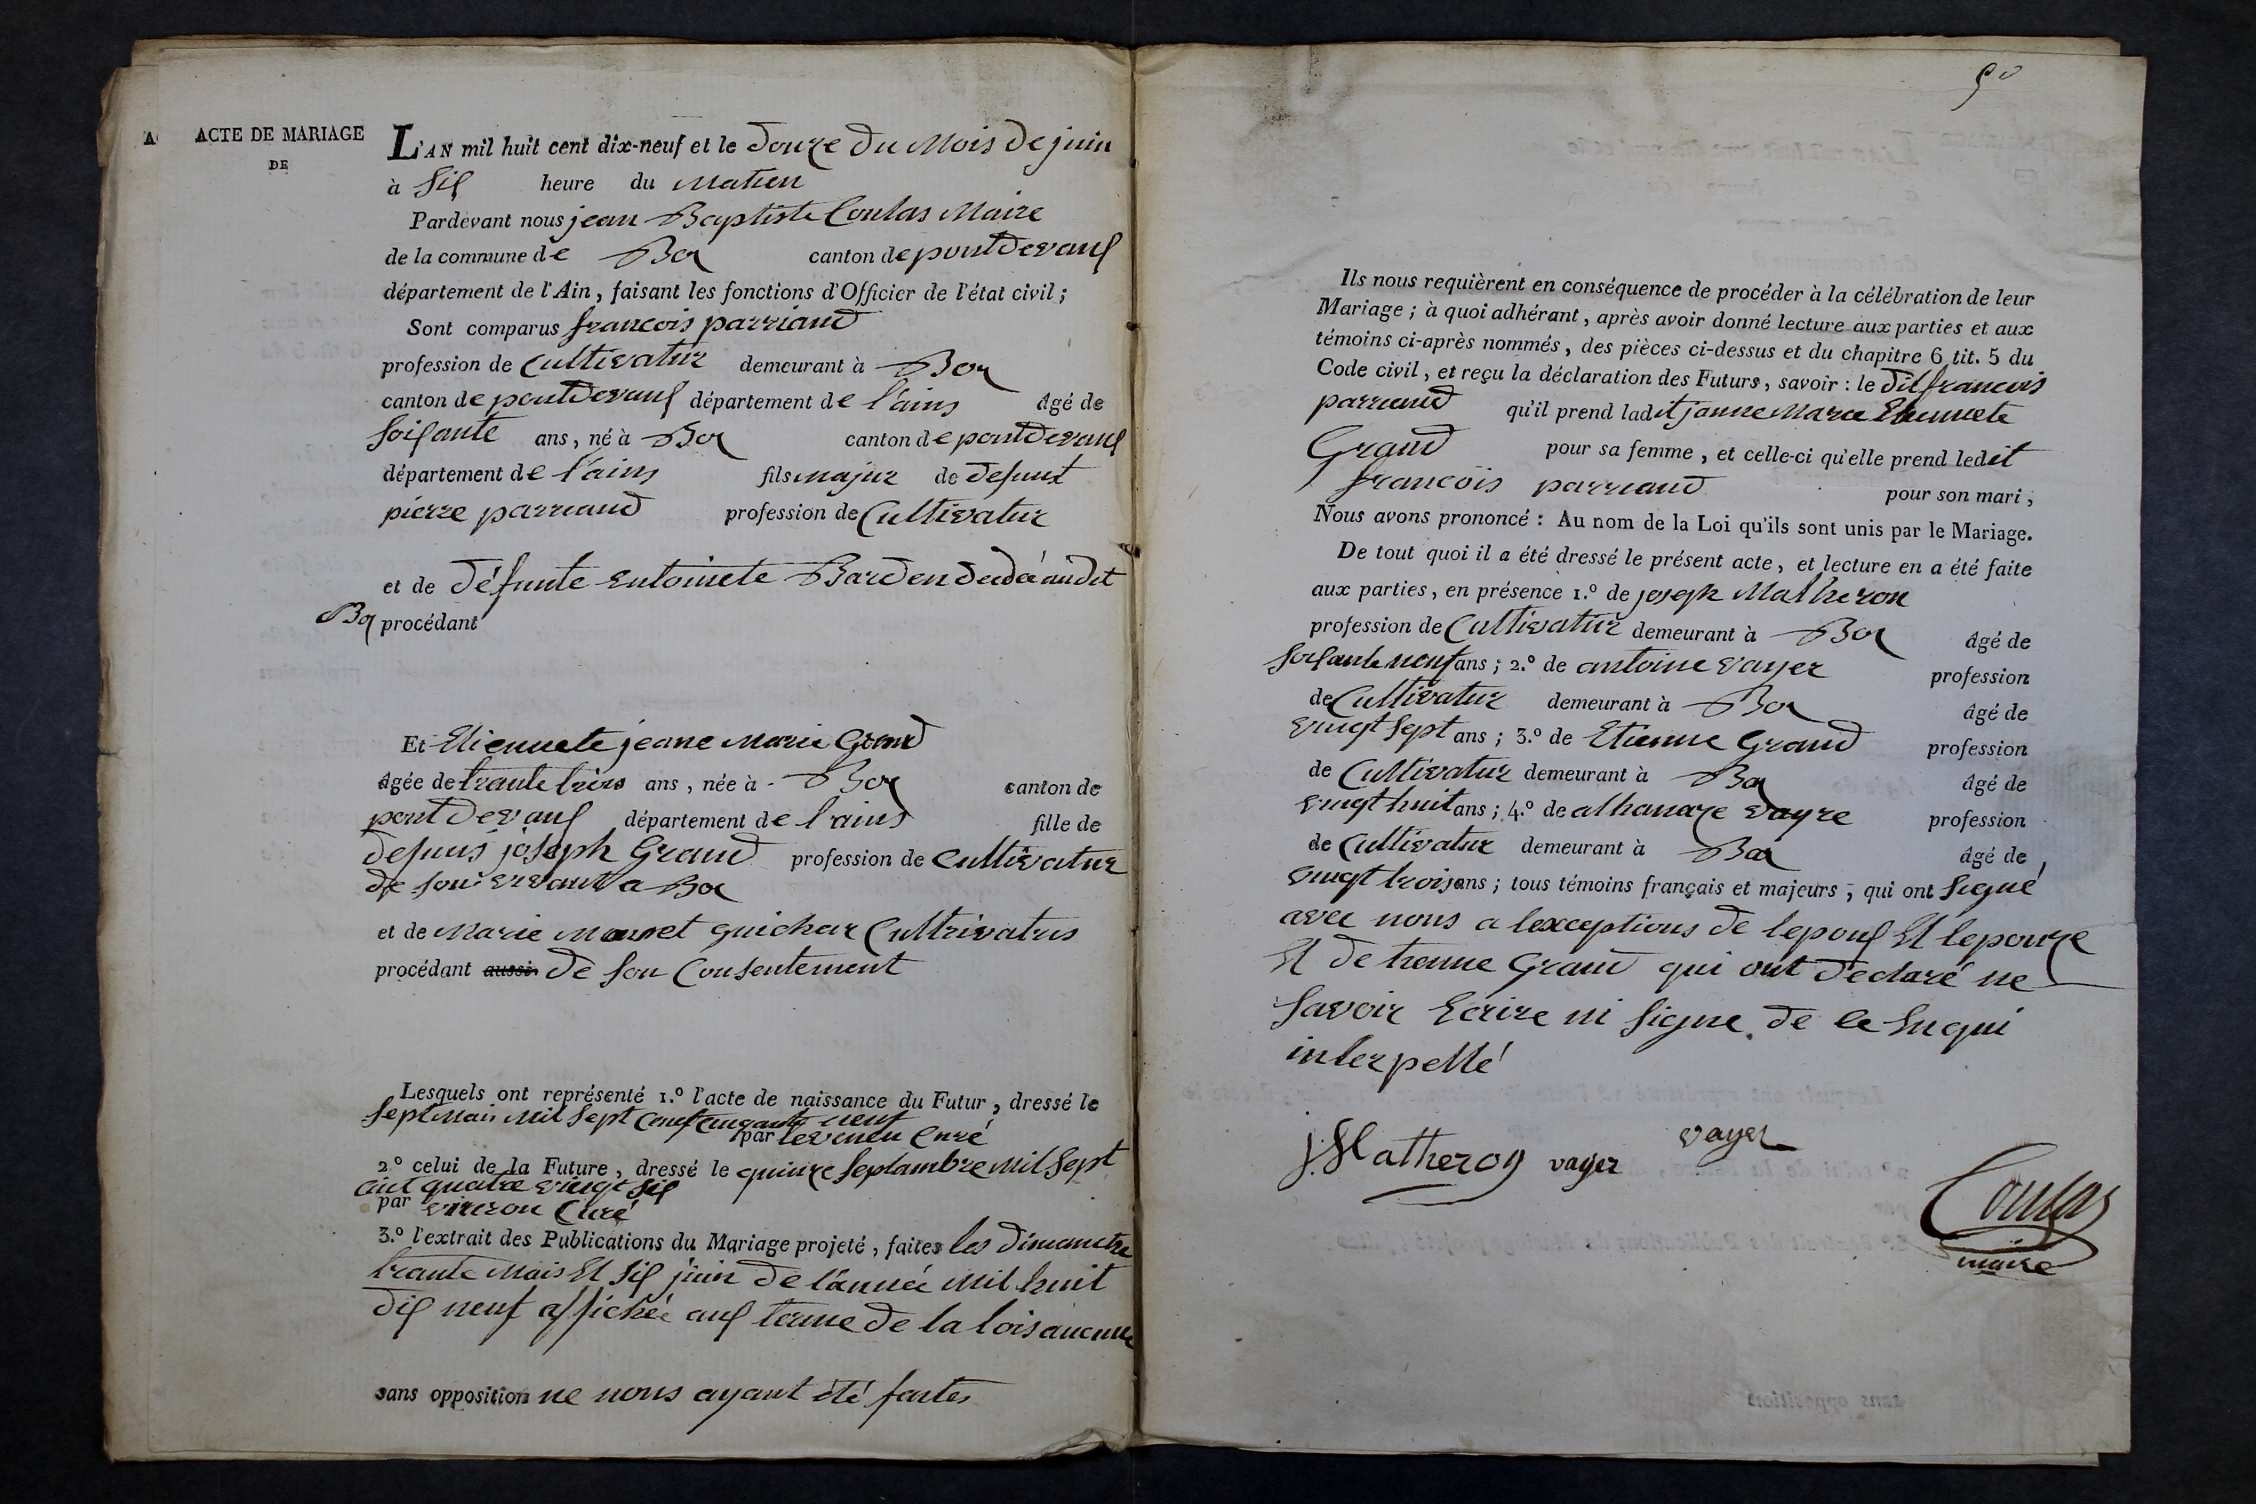 ACTE DE MARIAGE
DE
L'AN mil huit cent dix-neuf et le douze du mois de juin
à six heure du matien
Pardevant nous jean Baptiste Coulas Maire
de la commune de Boz canton de pontdevaux
département de l'Ain, faisant les fonctions d'Officier de l'état civil;
Sont comparus francois parriaud
profession de Cultivatur demeurant à Boz
canton de pontdevaux département de l'ains âgé de
soixante ans, né à Boz canton de pontdevaux
département de l'ains fils majur de defunt
pierre parriaud profession de Cultivatur
et de défunte entoinete audit
Boz procédant
Et Etiennete jeane Marie Grand
âgée de trante trois ans, née à Boz canton de
pont devaux département de l'ains fille de
defuns joseph Grand profession de Cultivatur
de son vivant a Boz
et de Marie guichar Cultrivatris
procédant aussi de son Consentement
Lesquels ont représenté 1.º l'acte de naissance du Futur, dressé le
sept mais mil sept cent cinqante neuf
par Curé
2.º celui de la Future, dressé le quinze septambre mil sept
cent quatre vingt six
par Curé
3.º l'extrait des Publications du Mariage projeté, faites les dimanche
trante Mais Et six juin de l'année mil huit
dix neuf affichée aux terme de la lois aucune
sans opposition ne nous ayant été faites
50
Ils nous requièrent en conséquence de procéder à la célébration de leur
Mariage; à quoi adhérant, après avoir donné lecture aux parties et aux
témoins ci-après nommés, des pièces ci-dessus et du chapitre 6 tit. 5 du
Code civil, et reçu la déclaration des Futurs, savoir: le dit francois
parriaud qu'il prend ladit janne Marie Etiennete
Grand pour sa femme, et celle-ci qu'elle prend ledit
francois parriaud pour son mari;
Nous avons prononcé: Au nom de la Loi qu'ils sont unis par le Mariage.
De tout quoi il a été dressé le présent acte, et lecture en a été faite
aux parties, en présence 1.º de joseph Matheron
profession de Cultivatur demeurant à Boz âgé de
soixante neuf ans; 2.º de antoine vayer profession
de Cultivatur demeurant à Boz âgé de
vingt sept ans; 3.º de Etienne Grand profession
de Cultivatur demeurant à Boz âgé de
vingt huit ans; 4.º de athanaze vayre profession
de Cultivatur demeurant à Boz âgé de
vingt trois ans; tous témoins français et majeurs, qui ont signé
avec nous a lexceptions de lepoux Et lepouze
Et de tienne Grand qui ont déclaré ne
savoir Ecrire ni signe de ce Enqui
interpellé
J. Matheron vayer vayer
Coulas
maire